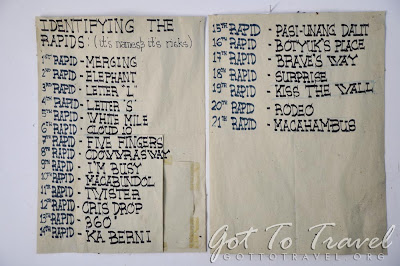 IDENTIFYING THE
RAPIDS: (it's names & it's risks)
1ST RAPID - MERGING
2ND RAPID - ELEPHANT
3RD RAPID - LETTER "L"
4TH RAPID - LETTER 'S'
5TH RAPID - WHITE MILE
6TH RAPID - CLOUD 10
7TH RAPID - FIVE FINGERS
8TH RAPID -
9TH RAPID - I'M BUSY
10TH RAPID - MACABINDOL
11TH RAPID - TWISTER
12TH RAPID - CRIS DROP
13TH RAPID - 360
14TH RAPID - KA BERNI
15TH RAPID - PASI-UNANG DALIT
16TH RAPID - BOTYOK'S PLACE
17TH RAPID - BRAVE'S WAY
18TH RAPID - SURPRISE
19TH RAPID - KISS THE WALL
20TH RAPID - RODEO
21TH RAPID - MACAHAMBUS
Got To Travel
GOTTOTRAVEL.ORG